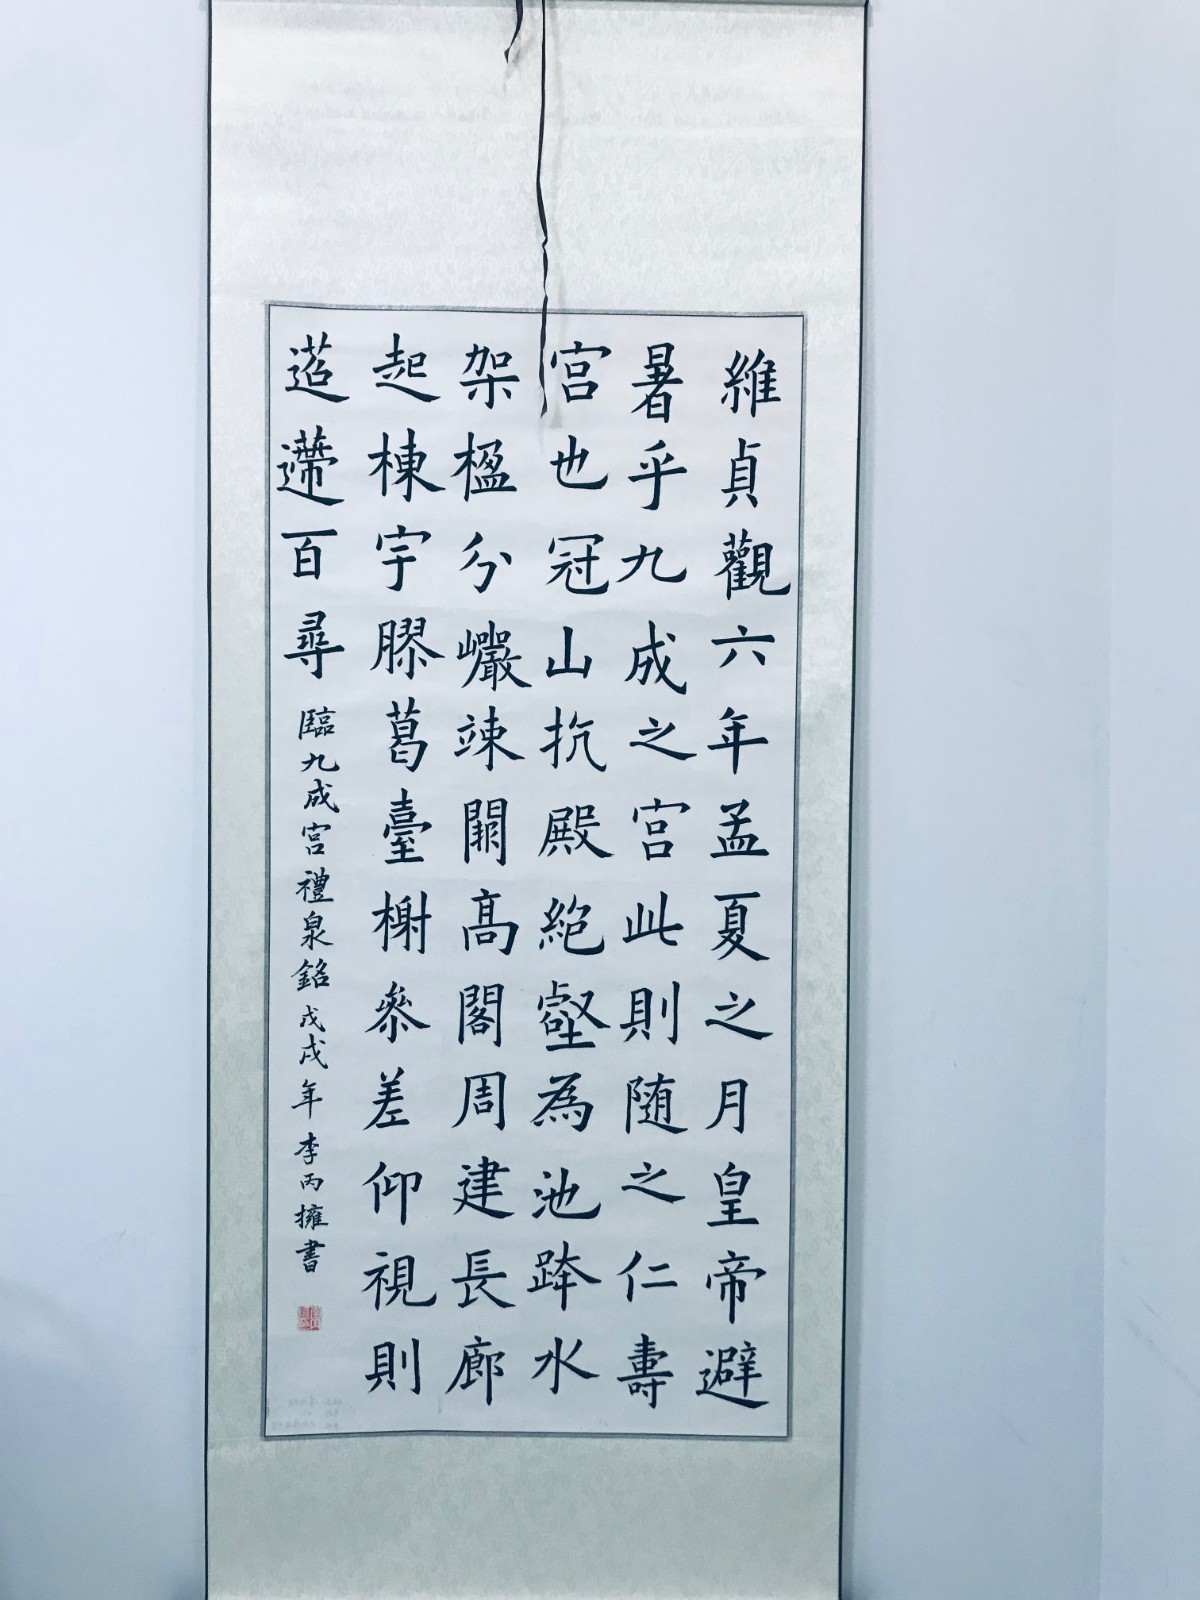 維貞觀六年孟夏之月皇帝避
暑乎九成之宮此則随之仁壽
宮也冠山抗殿絶壑為池跨水
架楹分巖竦闕高閣周建長廊
起棟宇膠葛臺榭參差仰視則
迢遰百尋
臨九成宮禮泉銘戊戌年李丙擁書